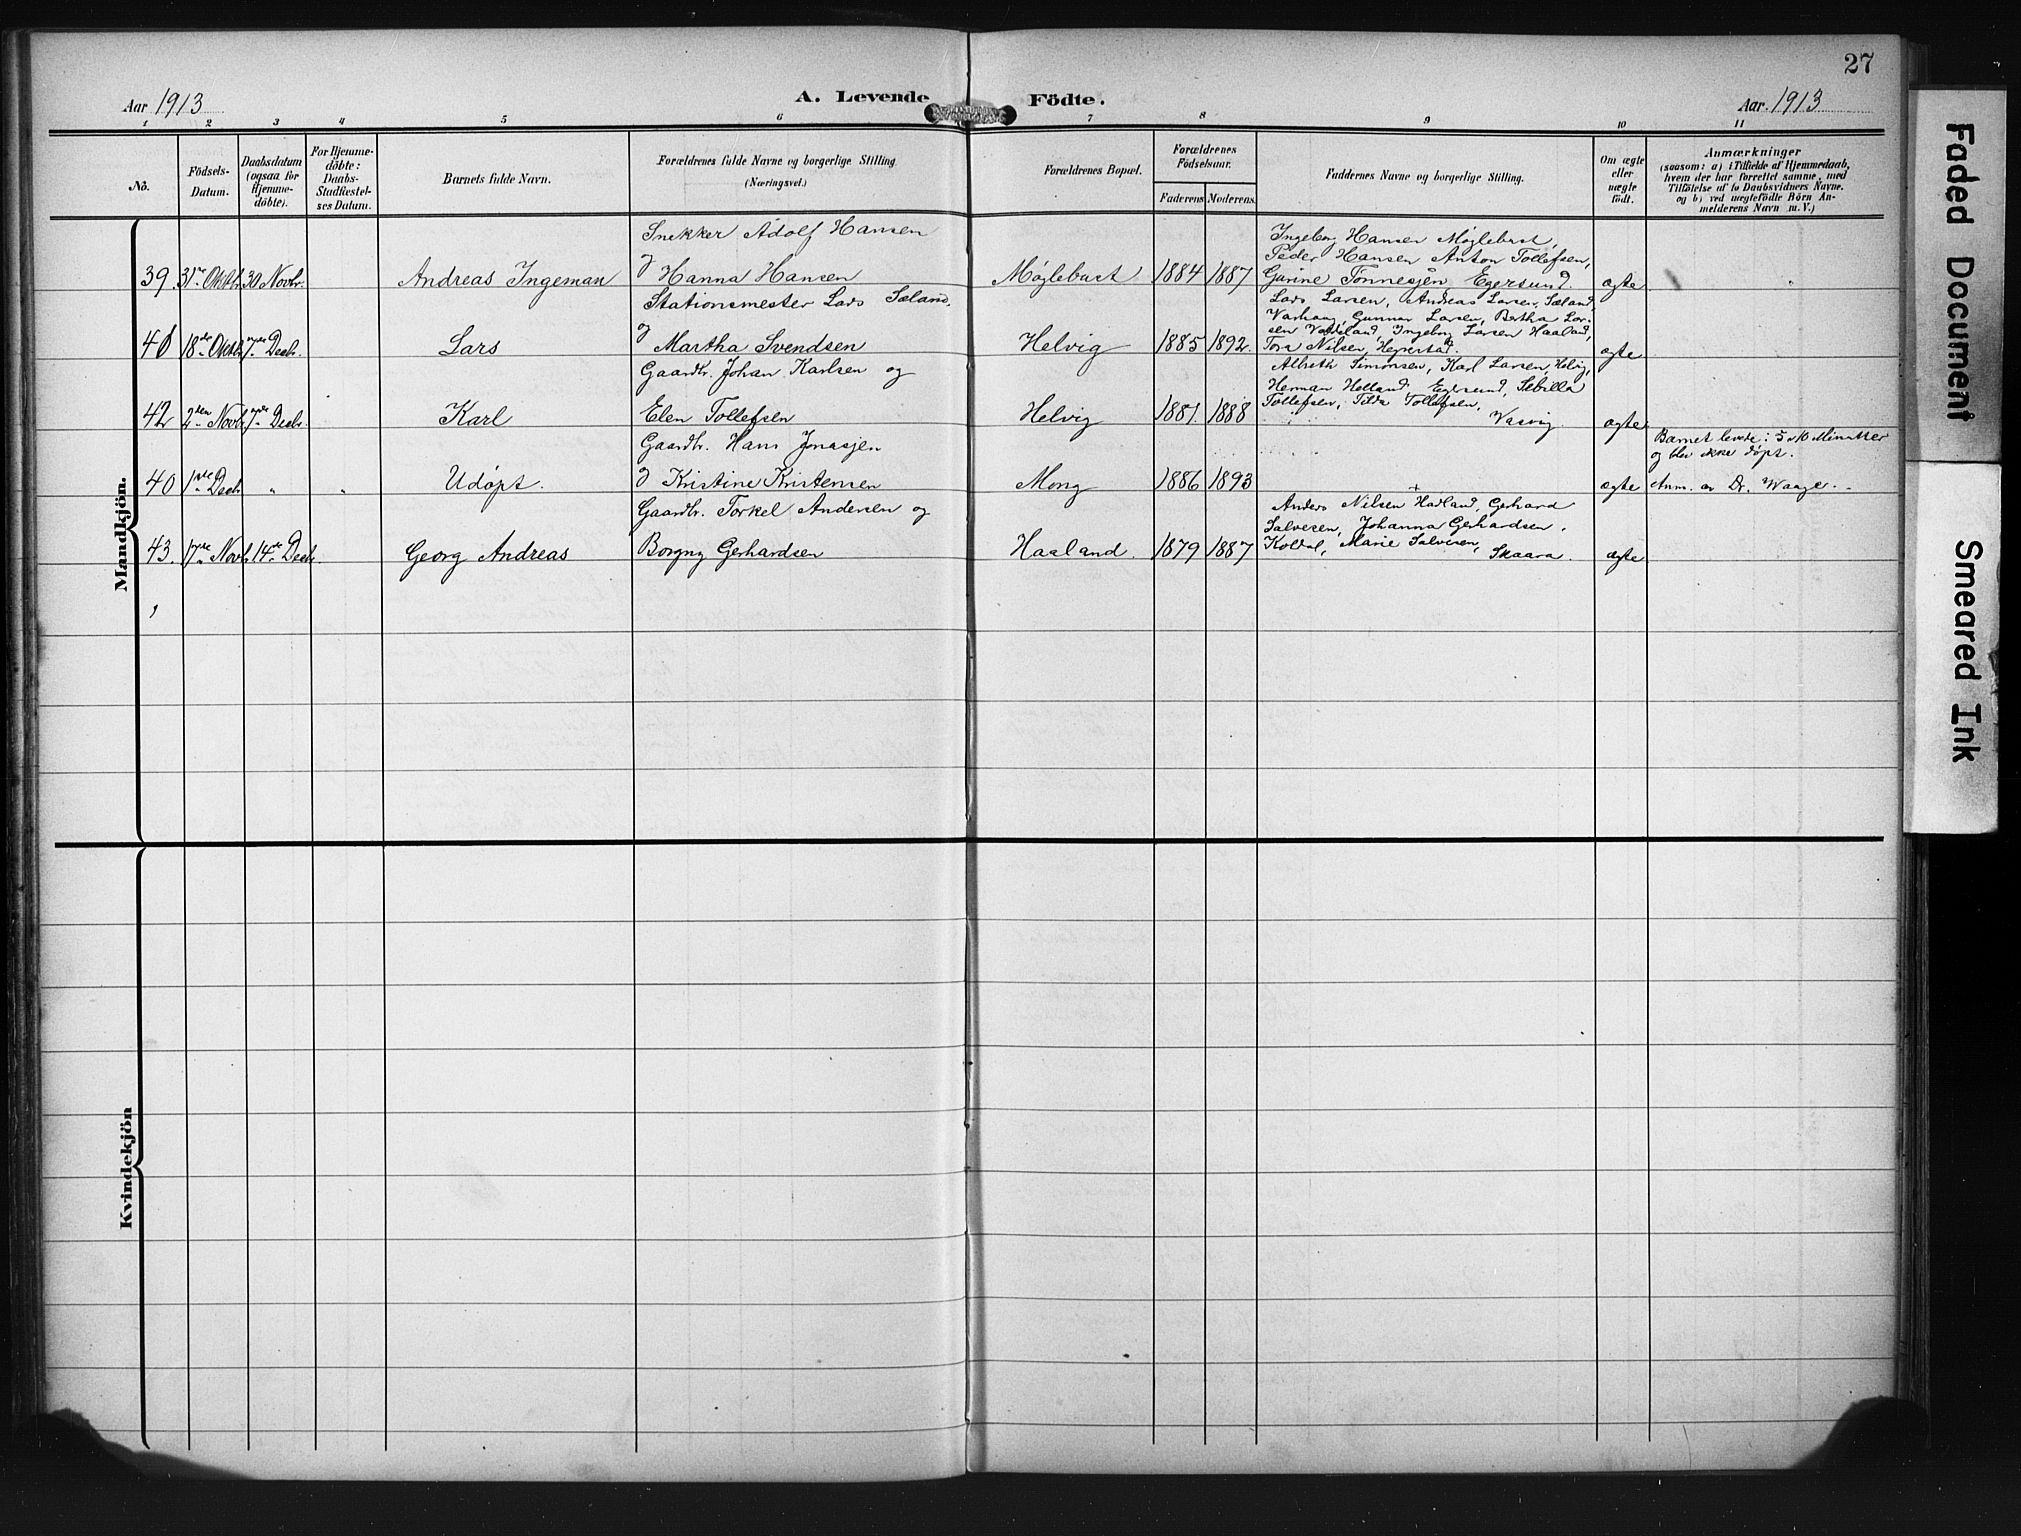 27
Aar 1913
A. Levende Födte.
Aar. 1913
1 2 3 4 5 6 7 8 9 10 11
No.
Födsels-
Datum.
Daabsdatum
(ogsaa for
Hjemme-
döbte).
For Hjemme-
döbte:
Daabs-
Stadfæstel-
ses Datum.
Barnets fulde Navn.
Forældrenes fulde Navne og borgerlige Stilling
(Næringsvei.)
Forældrenes Bopæl.
Forældrenes
Födselsaar.
Faderens Moderens.
Faddernes Navne og borgerlige Stilling.
Om ægte
eller
uægte
født.
Anmærkninger
(saasom: a) i Tilfælde af Hjemmedaab,
hvem der har forrettet samme, med
Tilføielse af to Daabsvidners Navne.
og b) ved uægtefödte Börn An-
melderens Navn m. V.)
Mandkjön.
Snekker Adolf Hansen
Ingeborg Hansen Møglebust,
Peder Hansen Anton Tollefsen,
39. 31te Oktbr. 30 Novbr. Andreas Ingeman og Hanna Hansen Møglebust 1884 1887 Garine Tønnesjen, Egersund. ægte
Stationsmester Lars Sæland.
Lars Larsen, Andreas Larsen, Sæland,
Varhaug, Gunnar Larsen, Bertha Lar-
sen Ingeborg Larsen Haaland,
41 18de Oktbr. 7de Decb. Lars og Martha Svendsen Helvig 1885 1892. Tora Nilsen, ægte
Gaardbr. Johan Karlsen og
Albreth Simonsen, Karl Larsen, Helvig,
Herman Helland, Egersund, Sebilla
Tollefsen, Tilda Tollefsen,
42 2den Novbr. 7de Decb. Karl Elen Tollefsen Helvig 1881. 1888 Vasvig. ægte
Gaardbr. Hans Jonasjen
Barnet levede i 5 a 10 Minutter
og blev ikke døpt.
40 1ste Decb. " " Udøpt. og Kristine Kristensen Mong 1886 1893 ægte Anm. av Dr. Waage.
Gaardbr. Torkel Andersen og
Anders Nilsen Hadland, Gerhard
Salvesen, Johanna Gerhardsen,
43. 17de Novbr. 14de Decb. Georg Andreas Borgny Gerhardsen Haaland. 1879 1887 Koldal, Marie Salvesen, Skaara. ægte
Kvindekjön
Faded Document
Smeared Ink